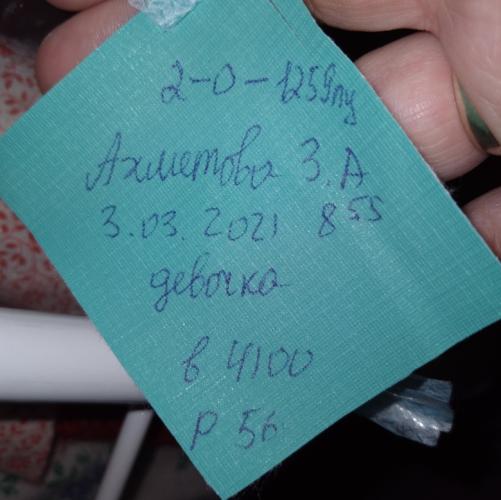 2-0-1259пу
Ахметова З.А
3.03.2021 8 55
девочка
в 4100
Р 56